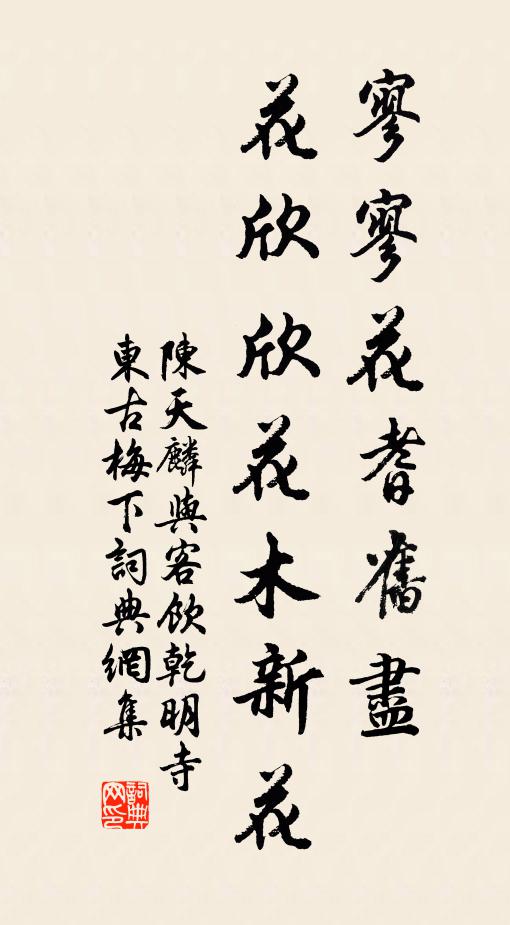 寥寥花耆舊盡
花欣欣花木新花
陳天麟與客飲乾明寺
東古梅下詞典網集
詞典
网印